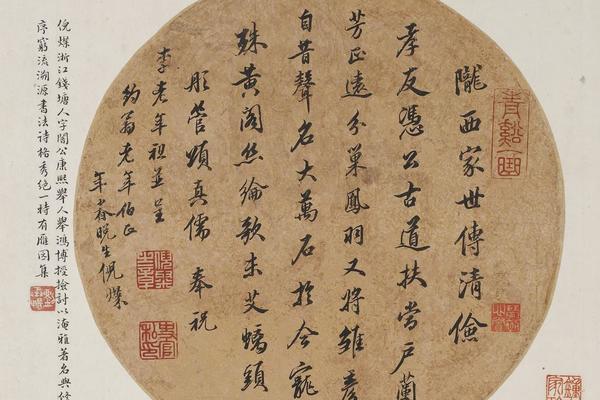 青谿一曲
隴西家世傳清儉
孝友憑公古道扶當戶蘭
芳正遠分巢鳳羽又將雛
自昔聲名大萬石於今寵
殊黃閣絲綸歌未艾螭頭
彤管頌真儒 奉祝
李老年祖並呈
約翁老年伯正
年眷晚生倪燦
倪煤浙江錢塘人字闇公康熙舉人舉鴻博授檢討以淹雅著名與修
序窮流溯源書法詩格秀絕一時有雁園集